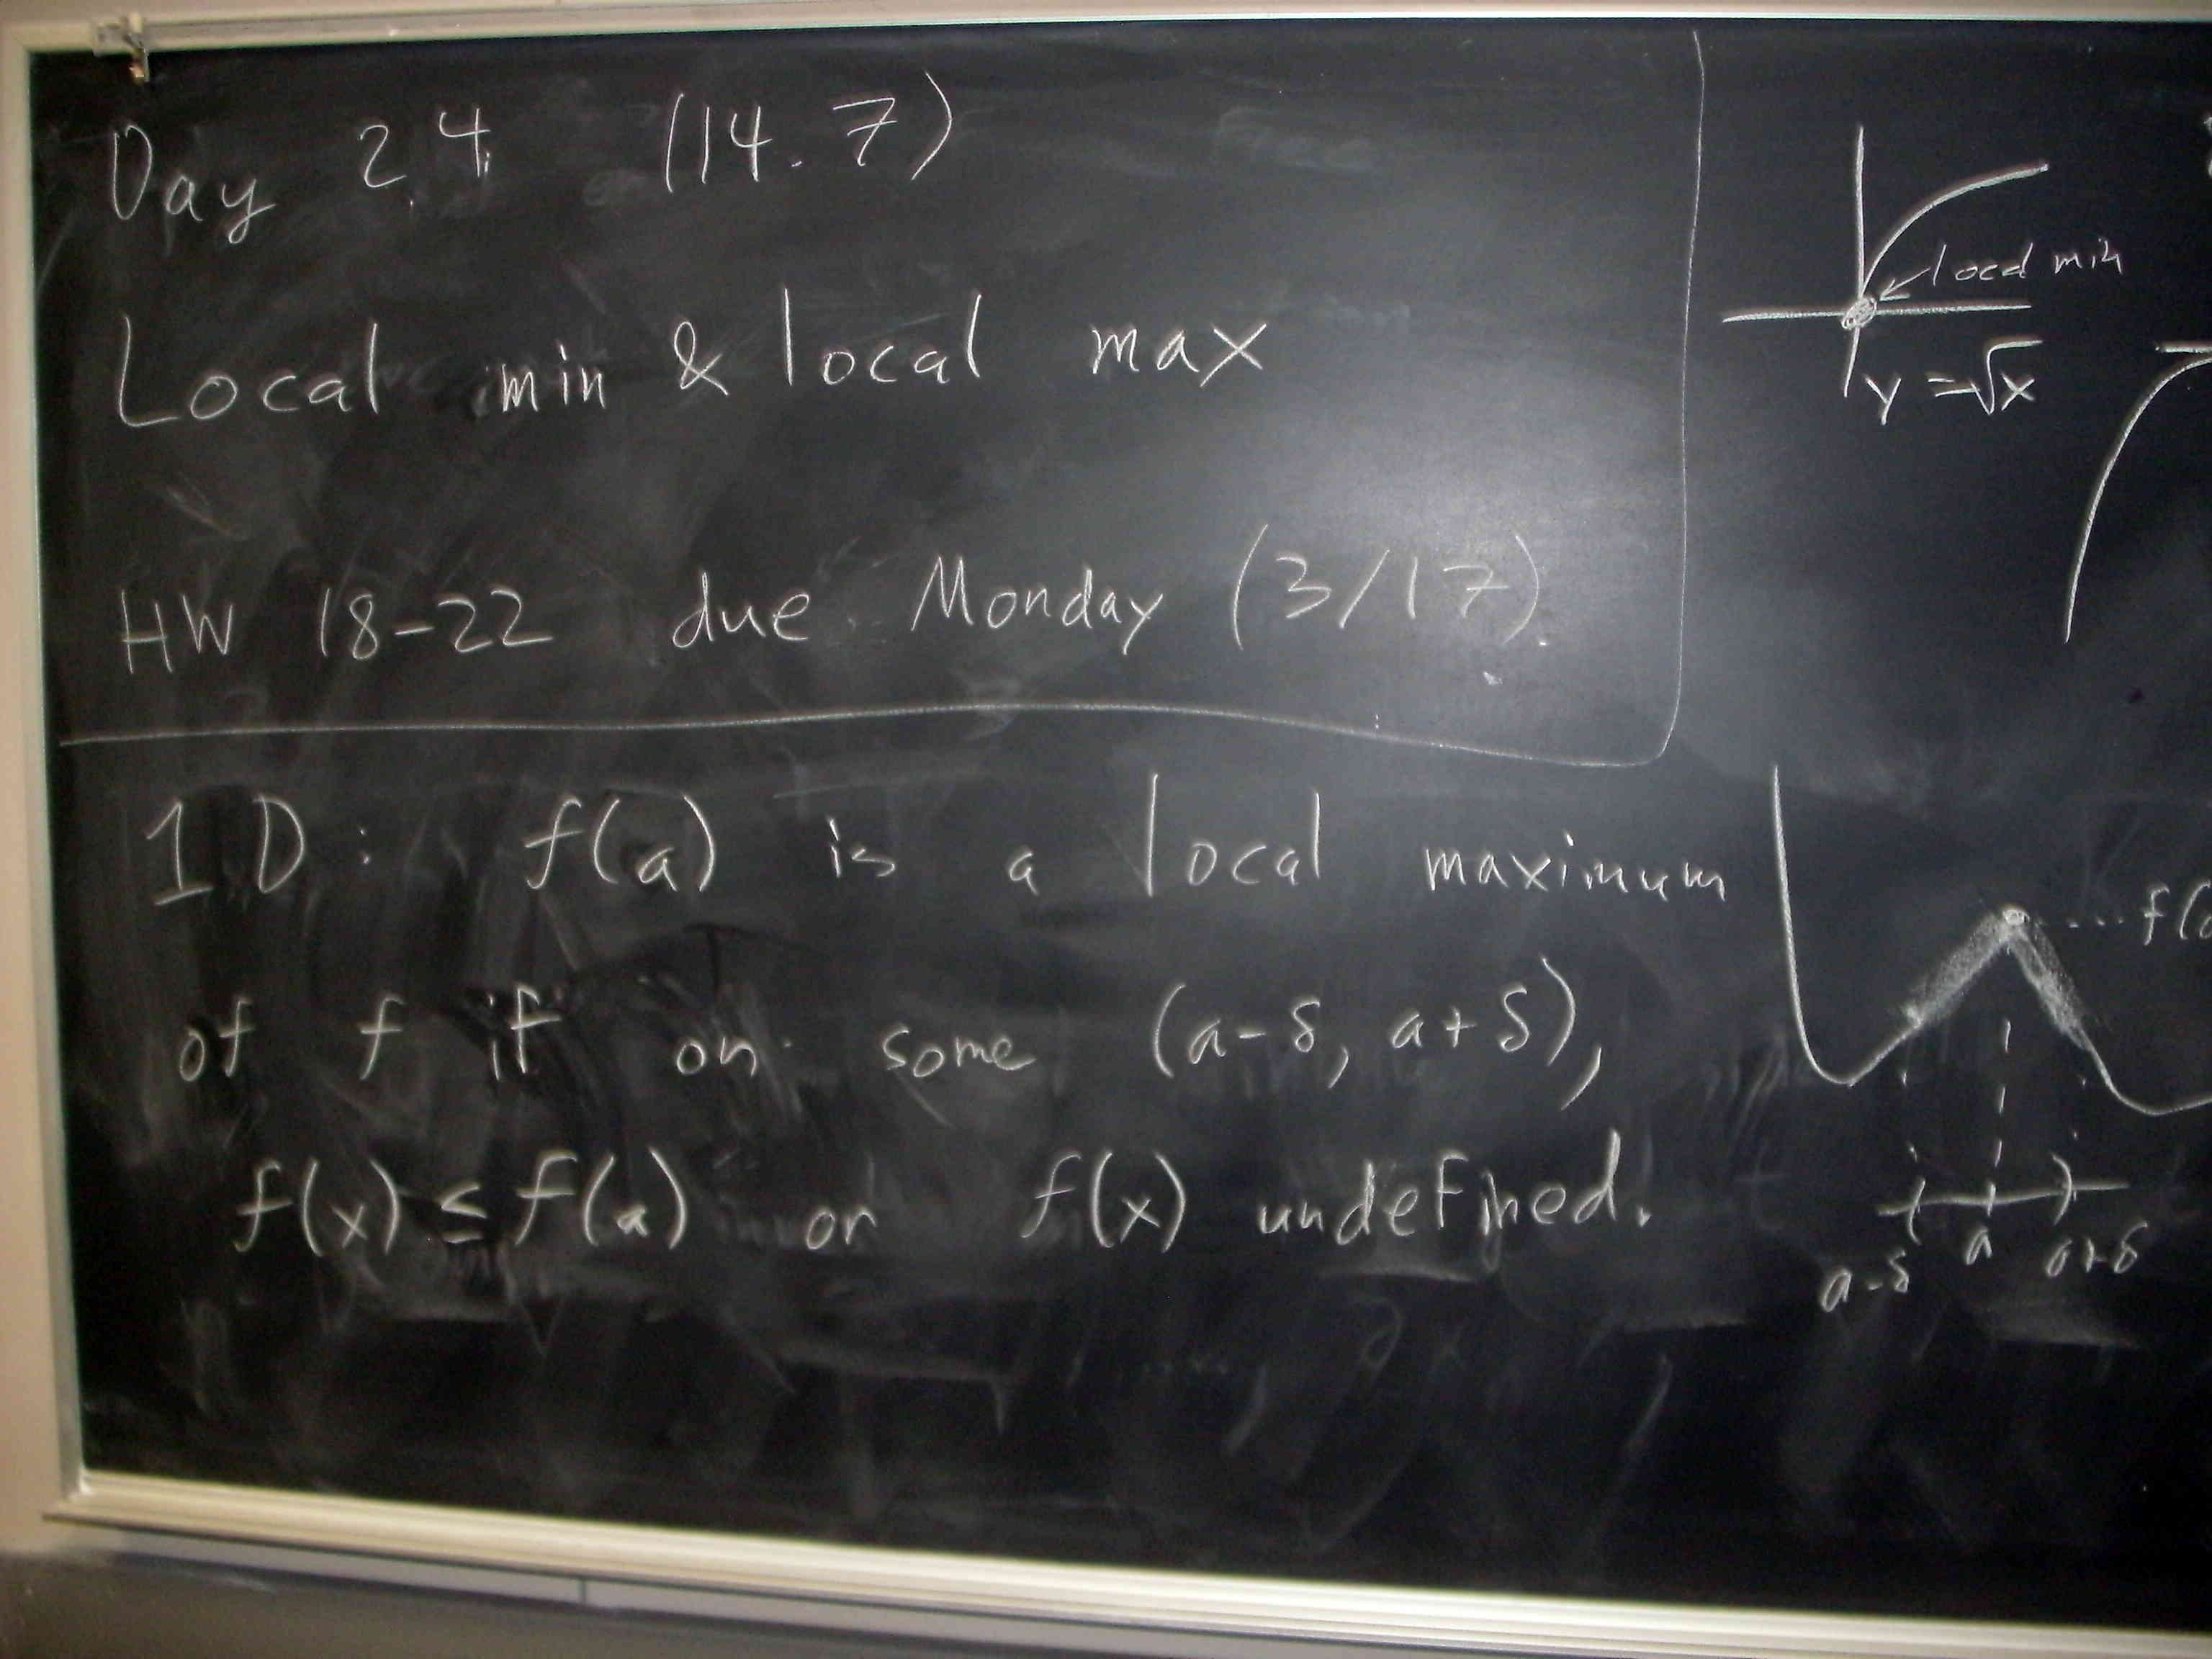 Day 24 (14.7)
Local min & local max
HW 18-22 due Monday (3/17).
1D: f(a) is a local maximum
of f if on some (a-δ, a+δ),
f(x) ≤ f(a) or f(x) undefined.
local min
y = √x
a-δ
a
a+δ